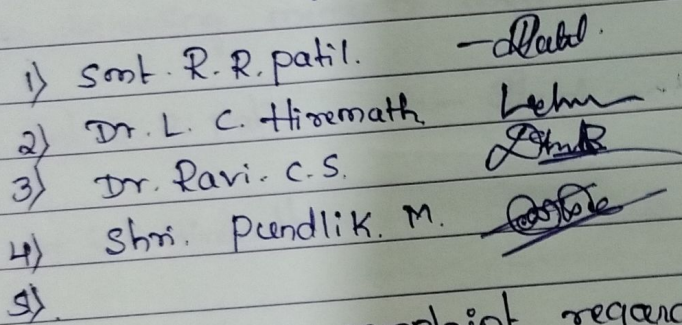 1) Smt. R. R. patil.
2) Dr. L. C. Hiremath
3) Dr. Ravi. C. S.
4) Shri. Pundlik. M.
5)
regard